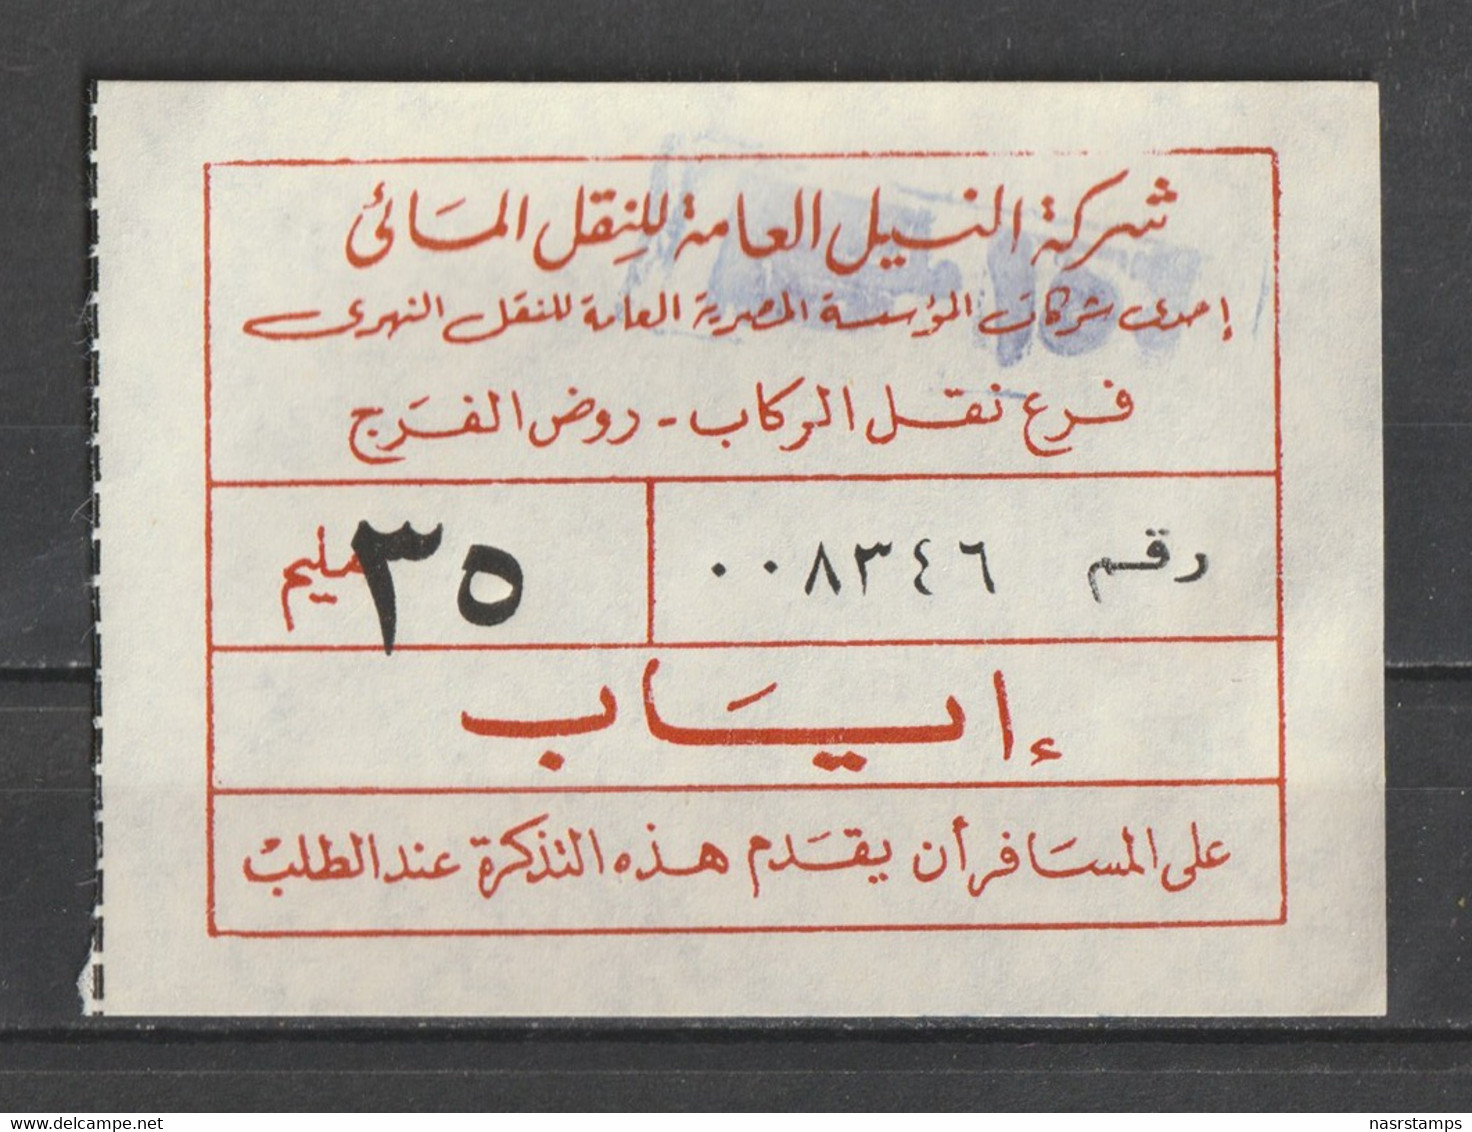 شركة النيل العامة للنقل المائى
إحدى شركات المؤسسة المصرية العامة للنقل النهرى
فرع نقل الركاب - روض الفرج
رقم ٠٠٨٣٤٦
٣٥ مليم
إياب
على المسافر أن يقدم هذه التذكرة عند الطلب
nasrstamps